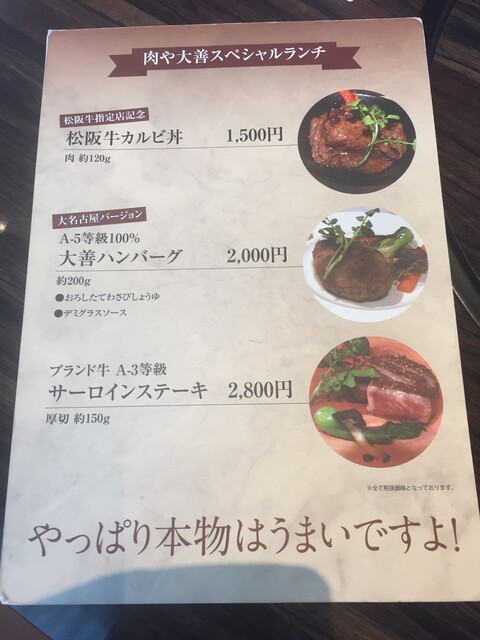 肉や大善スペシャルランチ
松阪牛指定店記念
松阪牛カルビ丼 1,500円
肉 約120g
大名古屋バージョン
A-5等級100%
大善ハンバーグ 2,000円
約200g
●おろしたてわさびしょうゆ
●デミグラスソース
ブランド牛 A-3等級
サーロインステーキ 2,800円
厚切 約150g
※全て税抜価格となっております。
やっぱり本物はうまいですよ!